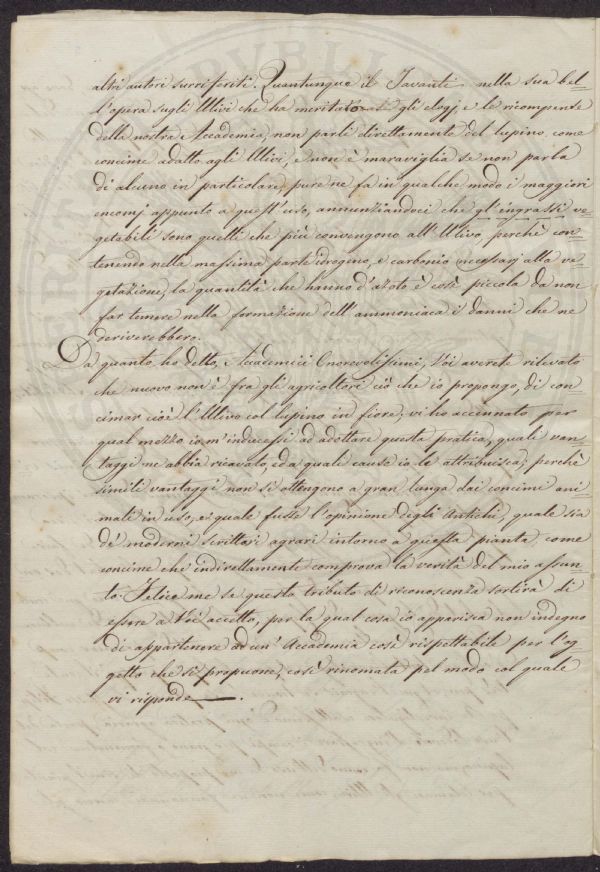 altri autori surriferiti. Quantunque il Tavanti nella sua bel-
l'opera sugli Ulivi che ha meritato gli elogj, e le ricompense
della nostra Accademia, non parli direttamente del lupino come
concime adatto agli Ulivi, e non è maraviglia se non parla
di alcuno in particolare, pure ne fa in qualche modo i maggiori
encomj appunto a quest'uso, annunziandoci che gl'ingrassi ve-
getabili sono quelli che più convengono all'Ulivo, perchè con-
tenendo nella massima parte idrogeno, e carbonio necessarj alla ve-
getazione, la quantità che hanno d'azoto è così piccola da non
far temere nella formazione dell'ammoniaca i danni che ne
deriverebbero.
Da quanto ho detto, Accademici Onorevolissimi, Voi averete rilevato
che nuovo non è fra gli agricoltori ciò che io propongo, di con-
cimar cioè l'Ulivo col lupino in fiore; vi ho accennato per
qual mezzo io m'inducessi ad adottare questa pratica, quali van-
taggi ne abbia ricavato, ed a quali cause io le attribuisca; perchè
simili vantaggi non si ottengono a gran lunga dai concimi ani-
mali in uso, e quale fusse l'opinione degli Antichi, quale sia
de' moderni scrittori agrari intorno a questa pianta come
concime che indirettamente comprova la verità del mio assun-
to. Felice me se questo tributo di riconoscenza sortirà di
essere a Voi accetto, per la qual cosa io apparisca non indegno
di appartenere ad un'Accademia così rispettabile per l'og-
getto che si propone, così rinomata pel modo col quale
vi risponde.